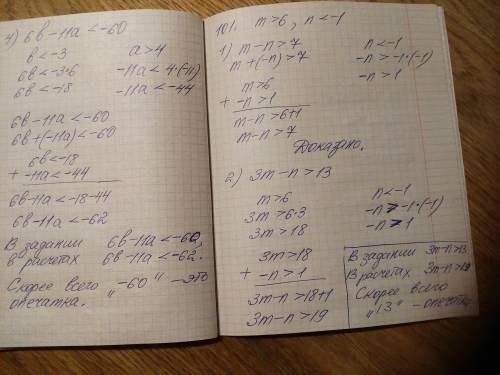 4) 6b-11a<-60
b<-3 a>4
6b<-3·6 -11a<4·(-11)
6b<-18 -11a<-44
6b-11a<-60
6b+(-11a)<-60
6b<-18
+ -11a<-44
6b-11a<-18-44
6b-11a<-62
В задании 6b-11a<-60,
в расчетах 6b-11a<-62.
Скорее всего "-60" - это
опечатка.
101. m>6, n<-1
1) m-n>7 n<-1
m+(-n)>7 -n>-1·(-1)
m>6 -n>1
+ -n>1
m-n>6+1
m-n>7
Доказано.
2) 3m-n>13
m>6 n<-1
3m>6·3 -n>-1·(-1)
3m>18 -n>1
3m>18
+ -n>1
3m-n>18+1
3m-n>19
В задании 3m-n>13
В расчетах 3m-n>19
Скорее всего
"13" - опечатка